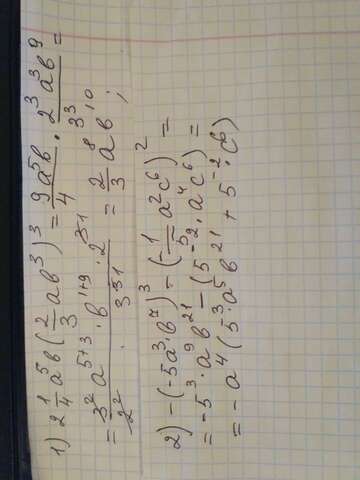 1) 2 1/4 a⁵b (2/3 ab³)³ = 9a⁵b/4 · 2³a³b⁹/3³ =
= 3² a⁵⁺³ · b¹⁺⁹ · 2³¹ / 2² · 3³¹ = 2/3 a⁸ b¹⁰ ;
2) -(-5a³·b⁷)³ - (-1/5 a²c⁶)² =
= -5³·a⁹b²¹ - (5⁻²·a⁴c⁶) =
= -a⁴(5³·a⁵b²¹ + 5⁻²·c⁶)